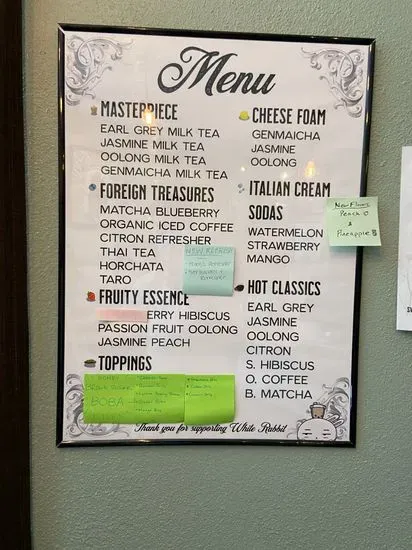 Menu
MASTERPIECE
EARL GREY MILK TEA
JASMINE MILK TEA
OOLONG MILK TEA
GENMAICHA MILK TEA
FOREIGN TREASURES
MATCHA BLUEBERRY
ORGANIC ICED COFFEE
CITRON REFRESHER
THAI TEA
HORCHATA
TARO
FRUITY ESSENCE
ERRY HIBISCUS
PASSION FRUIT OOLONG
JASMINE PEACH
TOPPINGS
HONEY
BROWN SUGAR
BOBA
CHEESE FOAM
GENMAICHA
JASMINE
OOLONG
ITALIAN CREAM
SODAS
WATERMELON
STRAWBERRY
MANGO
New Flavors
Peach
&
Pineapple
HOT CLASSICS
EARL GREY
JASMINE
OOLONG
CITRON
S. HIBISCUS
O. COFFEE
B. MATCHA
Thank you for supporting White Rabbit